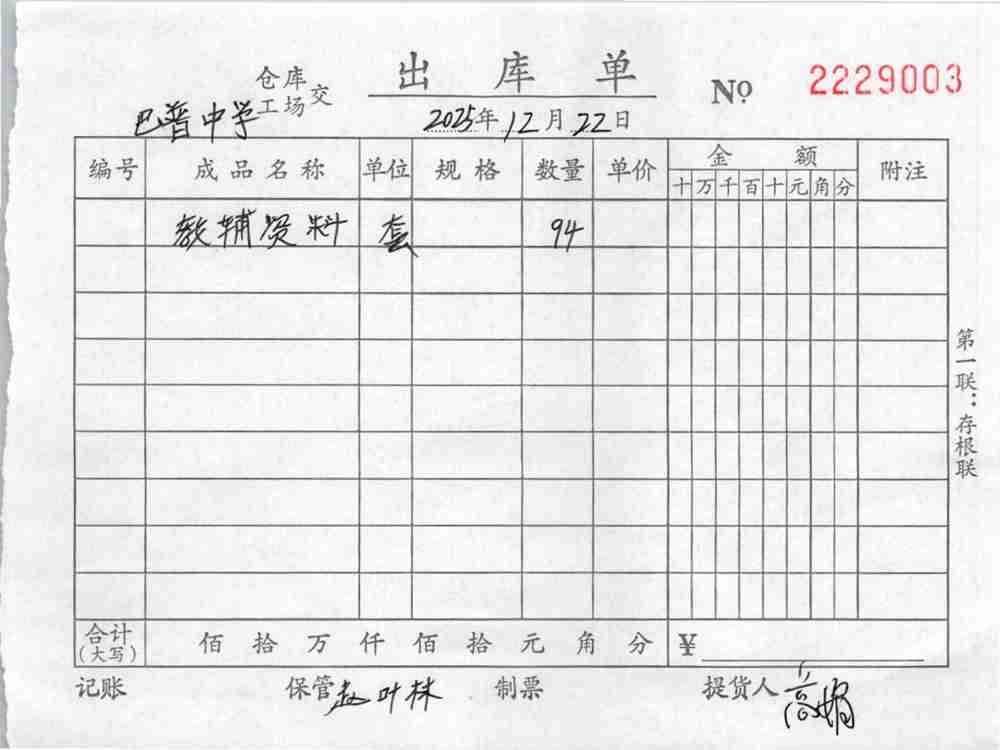 出库单
仓库
工场 交
巴普中学
№ 2229003
2025年12月22日
编号 成品名称 单位 规格 数量 单价 金额 附注
十 万 千 百 十 元 角 分
教辅资料 套 94
第一联：存根联
合计
(大写) 佰 拾 万 仟 佰 拾 元 角 分 ¥
记账 保管 赵叶林 制票 提货人 高娟